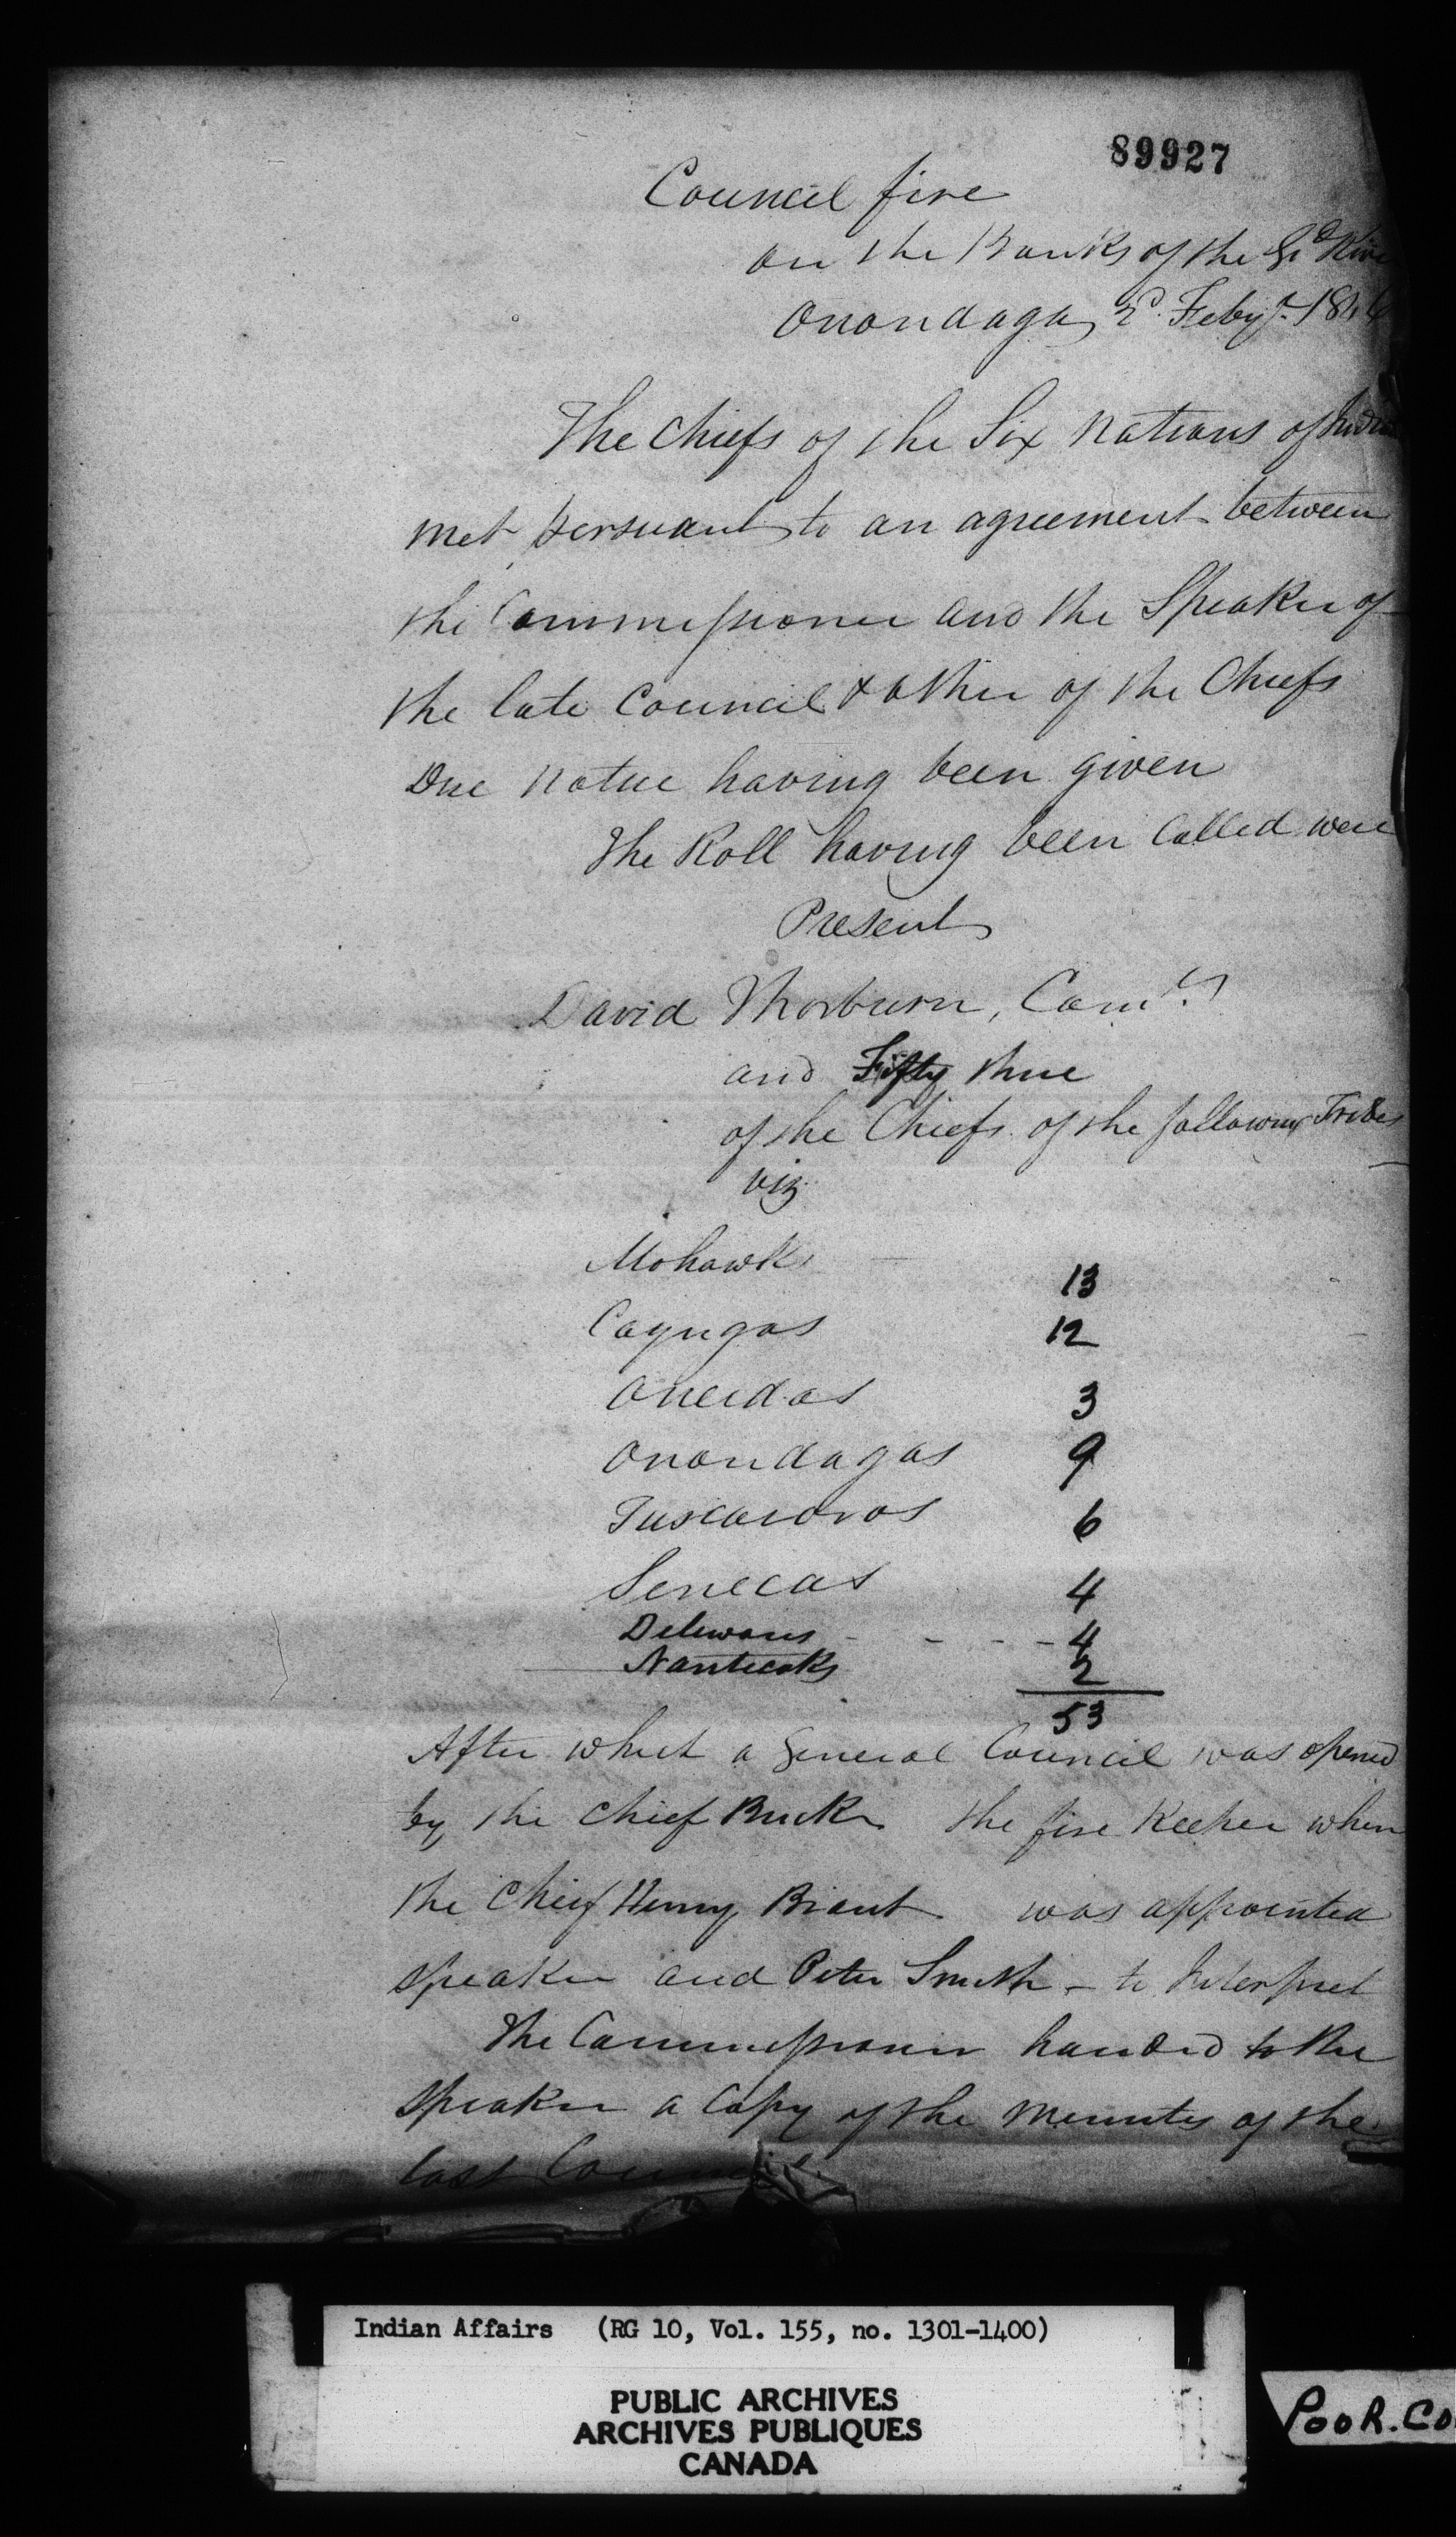 89927
Council fire
on the Banks of the Gd
Onondaga 2d Feby 184
The Chiefs of the Six Nations of
met persuant to an agreement between
the Commissioner and the Speaker of
the late Council & other of the Chiefs
Due notice having been given
The Roll having been Called were
Present
David Thorburn, Comr
and Fifty three
of the Chiefs of the following Tribes
viz
Mohawks 13
Cayugas 12
Oneidas 3
Onondagas 9
Tuscaroras 6
Senecas 4
Delewares - - - - 4
Nanticoks 2
53
After which a General Council was opened
by the Chief Buck the fire Keeper when
the Chief Henry Brant was appointed
speaker and Peter Smith - to Interpret
The Commissioner handed to the
speaker a Copy of the Minutes of the
last Council
Indian Affairs (RG 10, Vol. 155, no. 1301-1400)
PUBLIC ARCHIVES
ARCHIVES PUBLIQUES
CANADA
POOR.CO